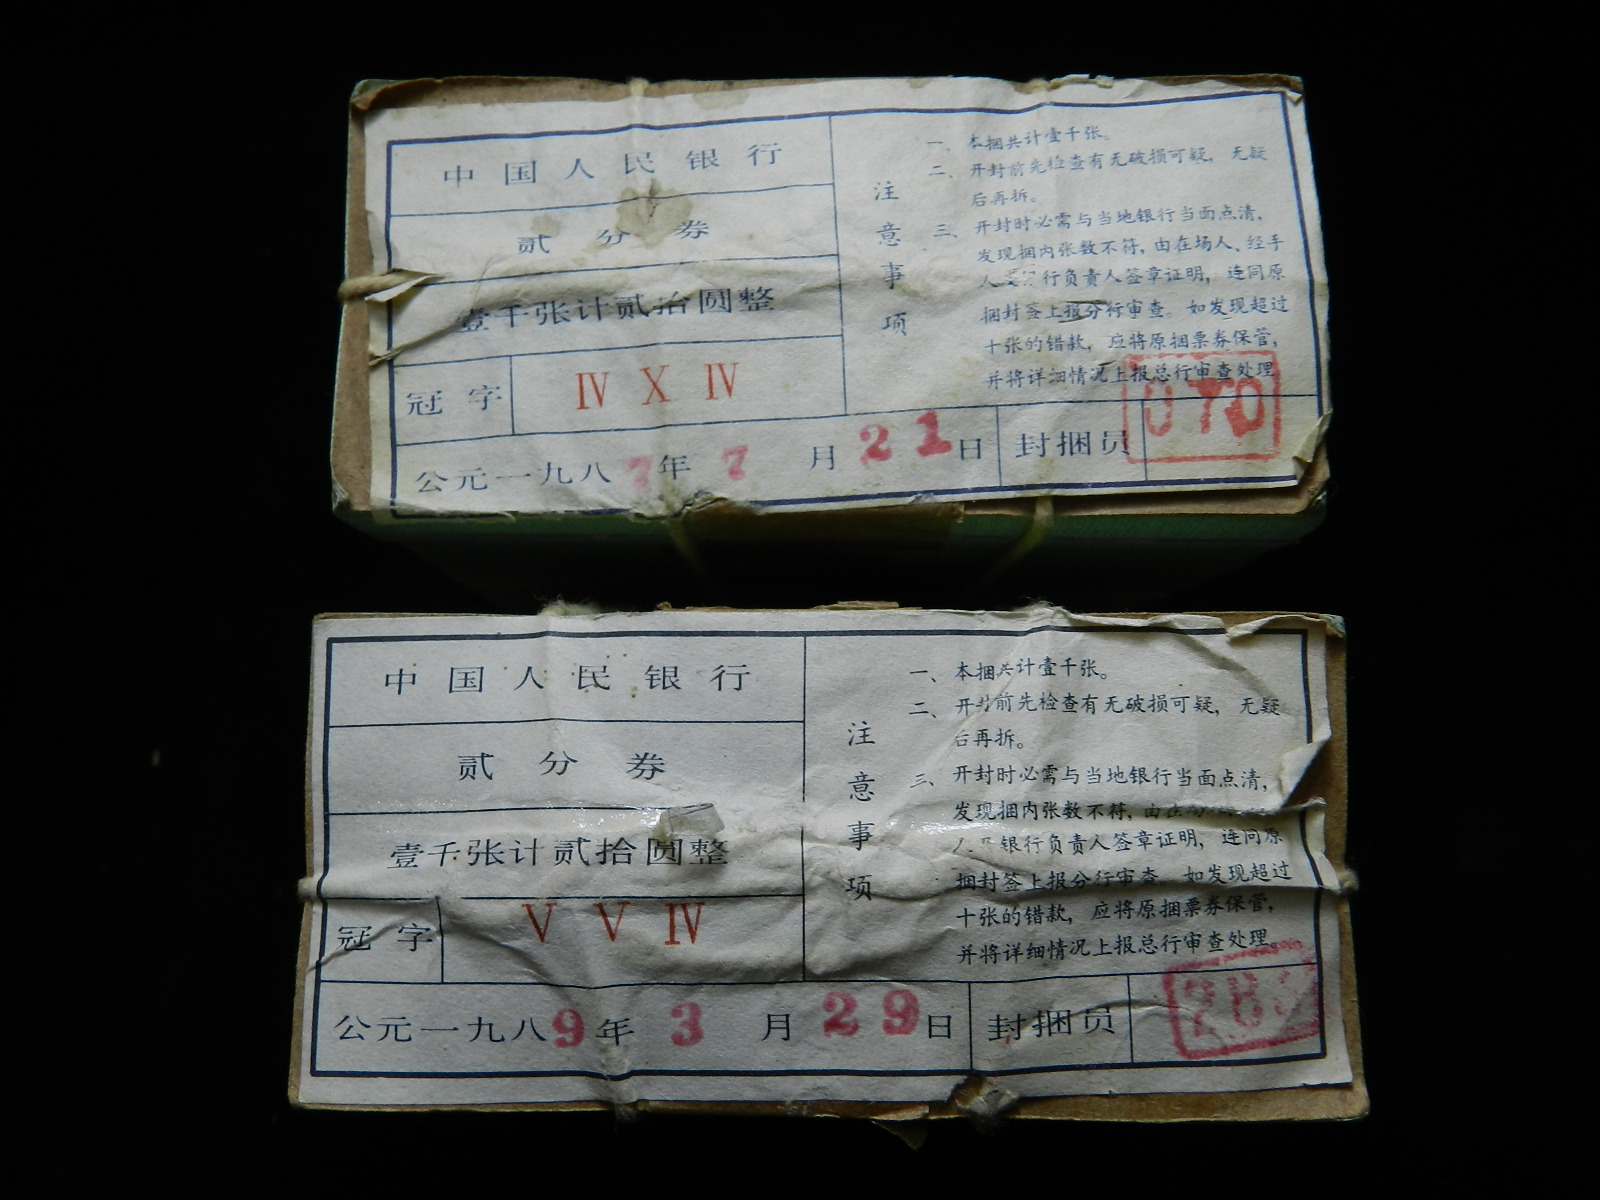 中国人民银行
贰分券
壹千张计贰拾圆整
冠字 Ⅳ Ⅹ Ⅳ
公元一九八7年7月21日
注意事项
一、本捆共计壹千张。
二、开封前先检查有无破损可疑，无疑
后再拆。
三、开封时必需与当地银行当面点清，
发现捆内张数不符，由在场人、经手
人 行负责人签章证明，连同原
捆封签上报分行审查。如发现超过
十张的错款，应将原捆票券保管，
并将详细情况上报总行审查处理
封捆员 070
中国人民银行
贰分券
壹千张计贰拾圆整
冠字 Ⅴ Ⅴ Ⅳ
公元一九八9年3月29日
注意事项
一、本捆共计壹千张。
二、开封前先检查有无破损可疑，无疑
后再拆。
三、开封时必需与当地银行当面点清，
发现捆内张数不符，由在
人 银行负责人签章证明，连同原
捆封签上报分行审查 如发现超过
十张的错款，应将原捆票券保管，
并将详细情况上报总行审查处理。
封捆员